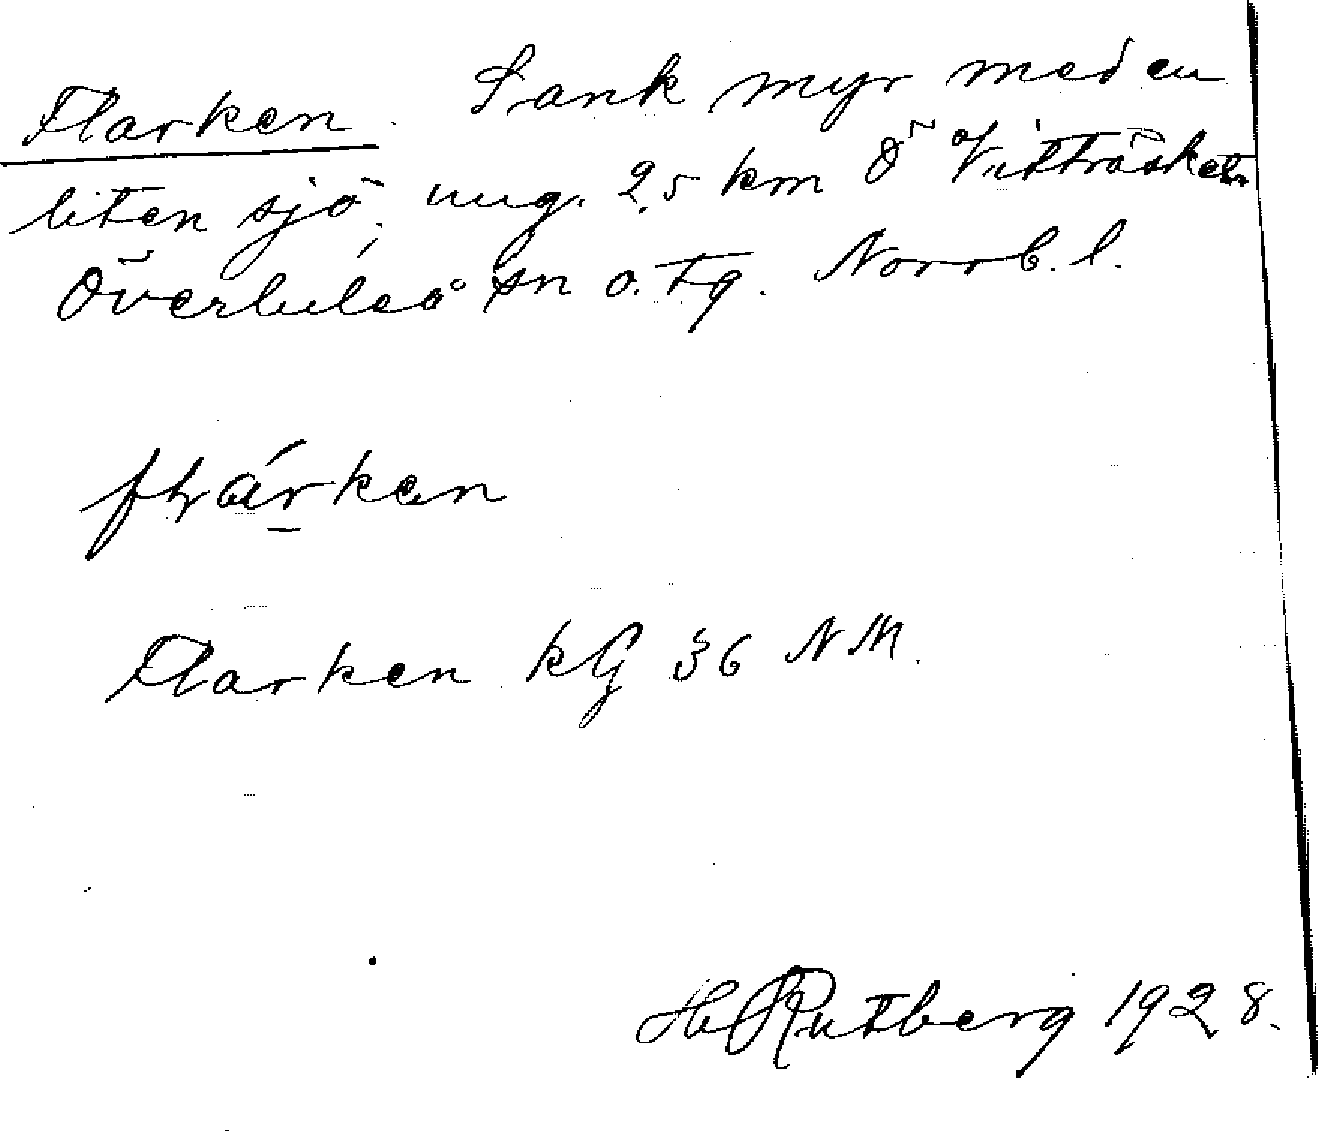 Flarken. Sank myr med en
liten sjö, ung. 2,5 km Ö Vitträsket.
Överluleå sn o. tg. Norrb. l.
Flarken kG 36 NM.
H Rutberg 1928.